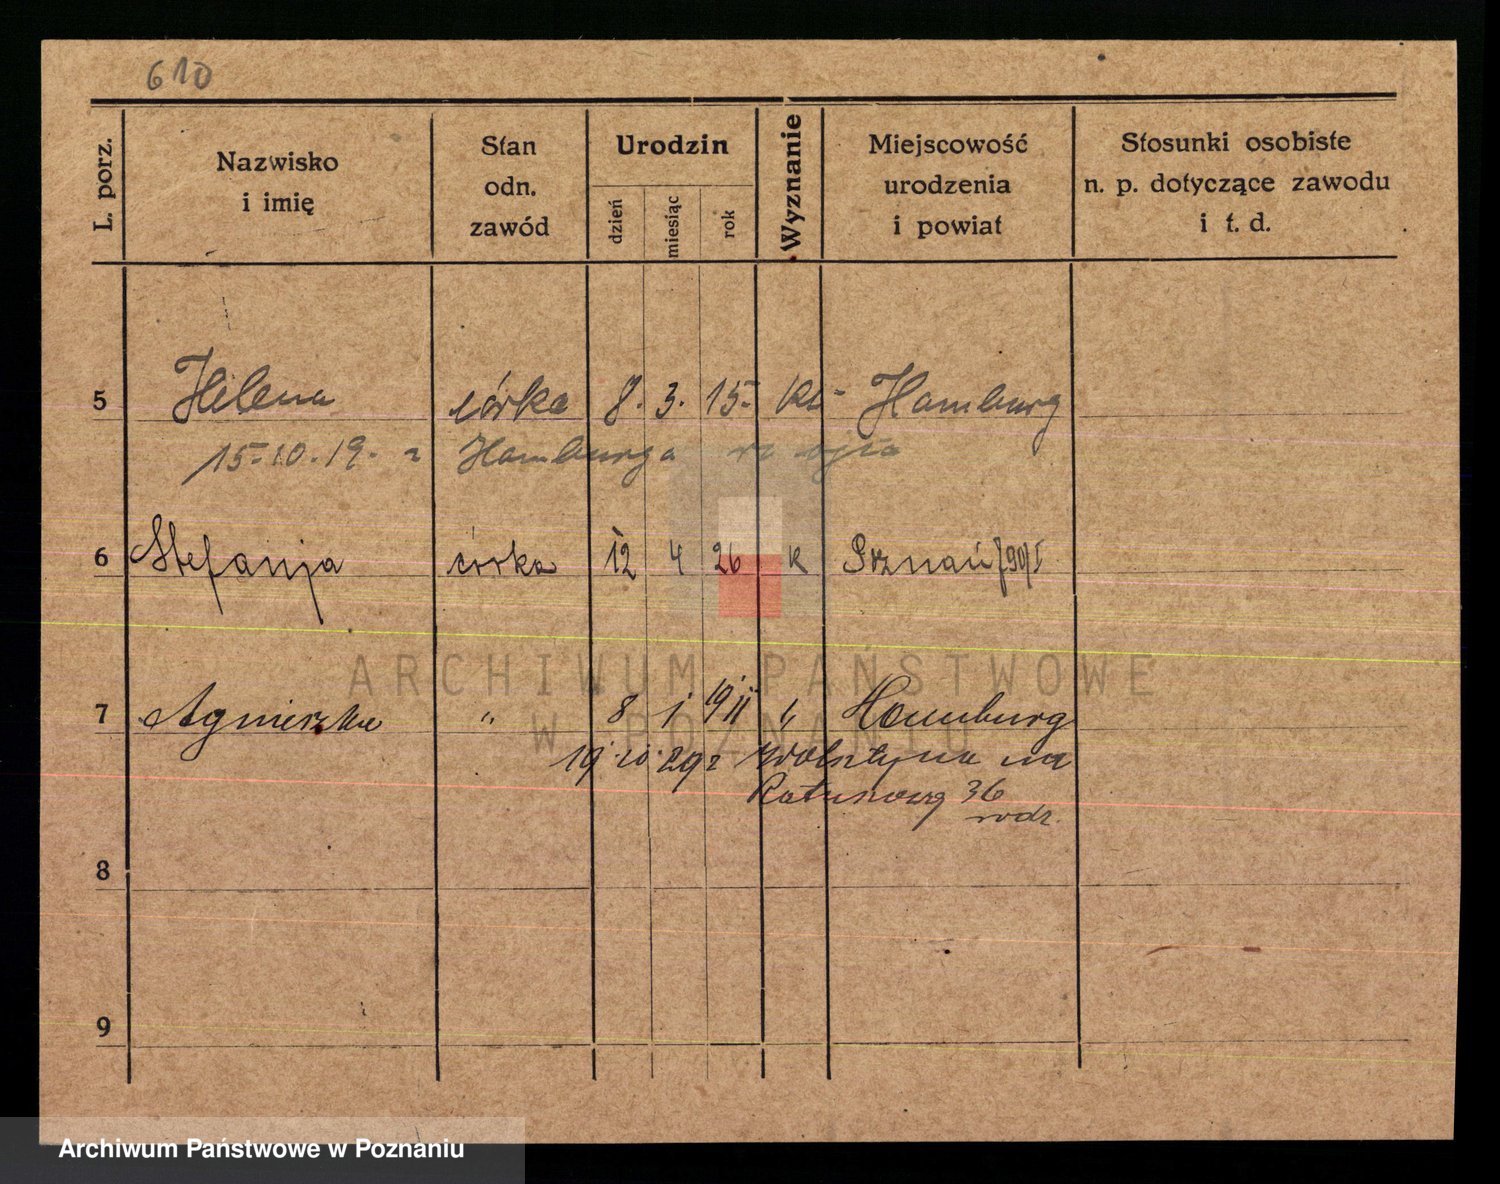 610
L. porz.
Nazwisko
i imię
Stan
odn.
zawód
Urodzin
dzień
miesiąc
rok
Wyznanie
Miejscowość
urodzenia
i powiat
Stosunki osobiste
n. p. dotyczące zawodu
i t. d.
5 Helena córka 8. 3. 15. kt Hamburg
15.10.19. z Hamburga
6 Stefanja córka 12 4 26 k Poznań
7 Agnieszka " 8 1 1911 " Hamburg
19.10.29 z Wolsztyna na
Ratunową 36
rodz.
8
9
ARCHIWUM PAŃSTWOWE
W POZNANIU
Archiwum Państwowe w Poznaniu